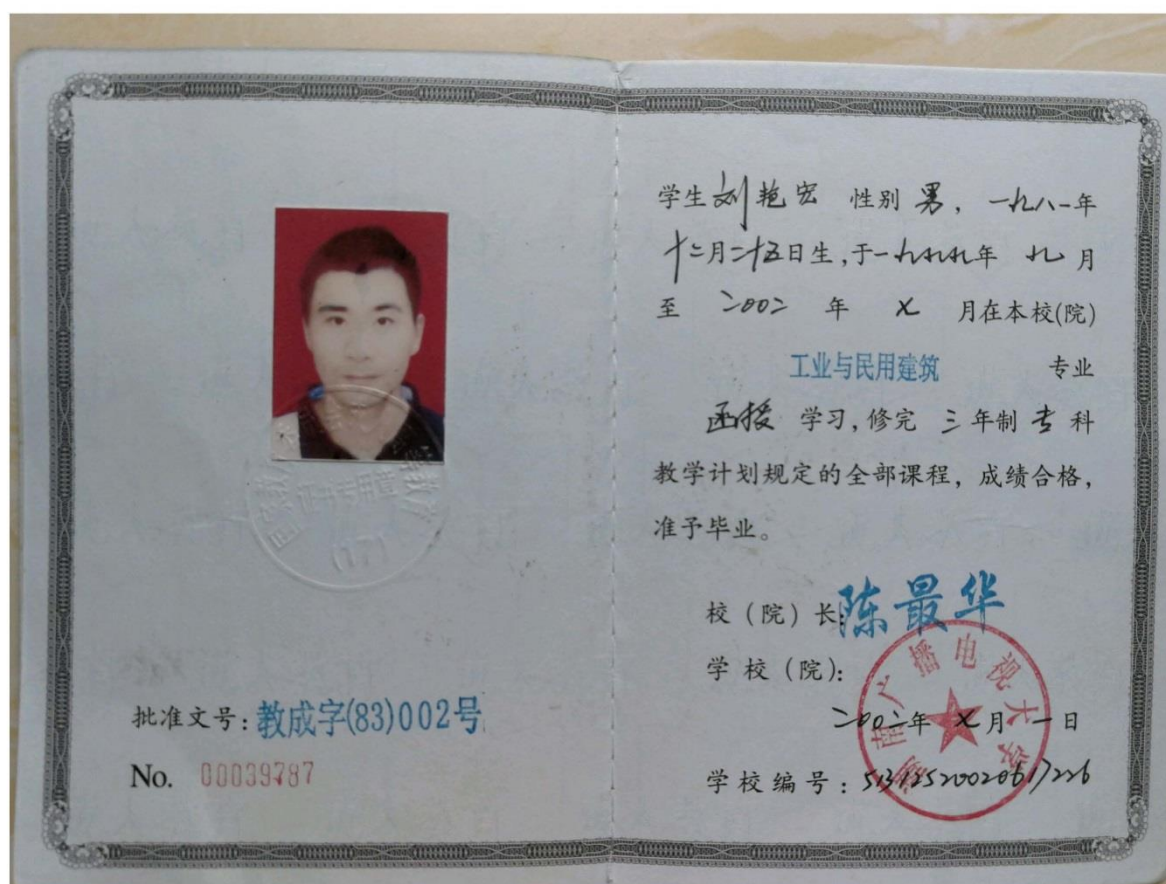 批准文号:教成字(83)002号
No. 00039787
学生刘艳宏 性别 男,一九八一年
十二月二十五日生,于一九九九年 九 月
至 二00二 年 七 月在本校(院)
工业与民用建筑 专业
函授 学习,修完 三 年制 专 科
教学计划规定的全部课程,成绩合格,
准予毕业。
校(院)长:陈最华
学校(院):
湖南广播电视大学
二00二年 七 月 一 日
学校编号:
证书专用章
(17)